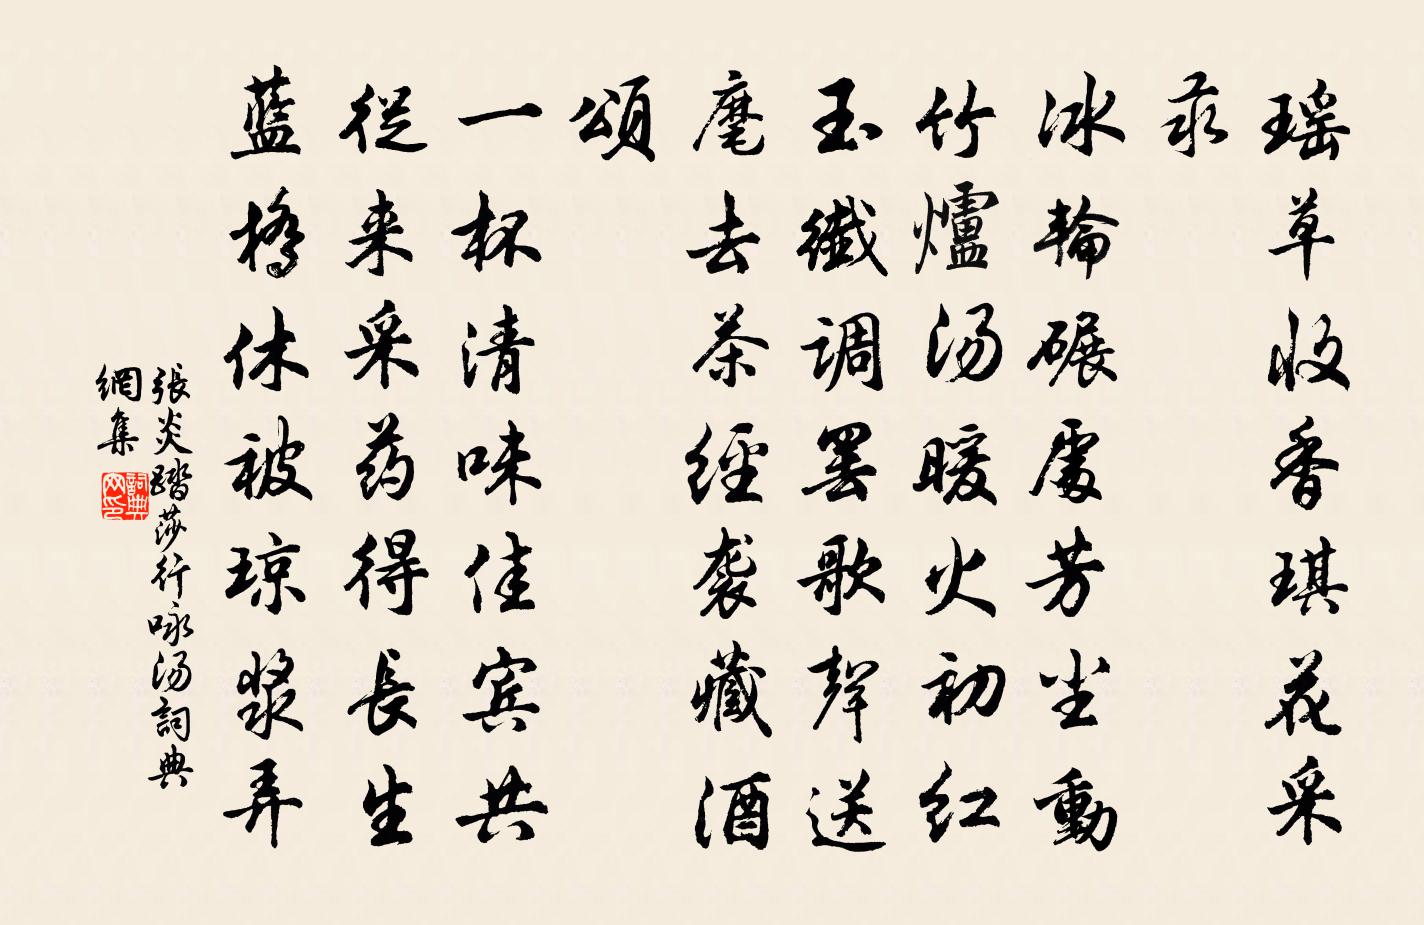 瑶草收香琪花采
汞
冰輪碾處芳尘動
竹爐汤暖火初红
玉纖调罢歌聲送
麾去茶經袭藏酒
頌
一杯清味佳宾共
從来采药得長生
藍橋休被琼浆弄
張炎踏莎行咏汤詞典
網集
詞典
网印